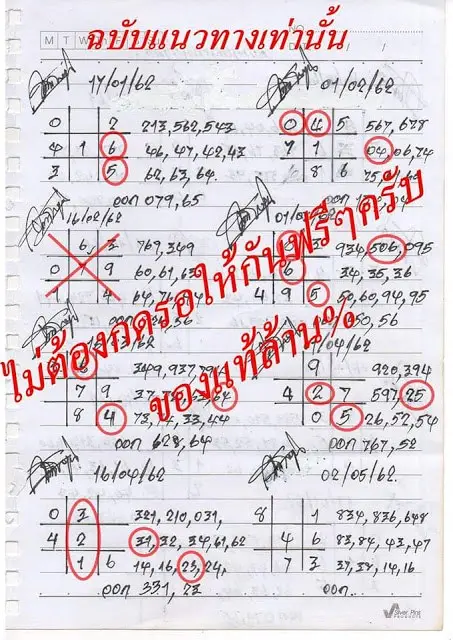 ฉบับแนวทางเท่านั้น
M T W
17/01/62
0 7 213,562,543
4 1 6 46,47,42,43
3 5 62,63,64.
ออก 079,65
01/02/62
0 4 5 567,678
7 1 04,06,74
8 6
ออก
16/02/62
6, 3 769,349
0 7 9 60,61,63
4 64,
ออก 56
3 934,506,095
6 34,35,36
4 9 5 50,60,94,95
50,56
ไม่ต้องกดรอให้กันฟรีๆครับ
ของแท้ล้าน%
349,937,
7 9
8 4 73,74,33,44
ออก 628,64
04/62
9 920,394
4 2 7 597,25
0 5 26,52,54
ออก 767,52
16/04/62
0 3 321,210,031,
4 2 31,32,34,61,62
1 6 14,16,23,24,
ออก 331,23
02/05/62.
8 1 834,836,648
4 6 83,84,43,47
7 3 37,38,14,16
ออก...